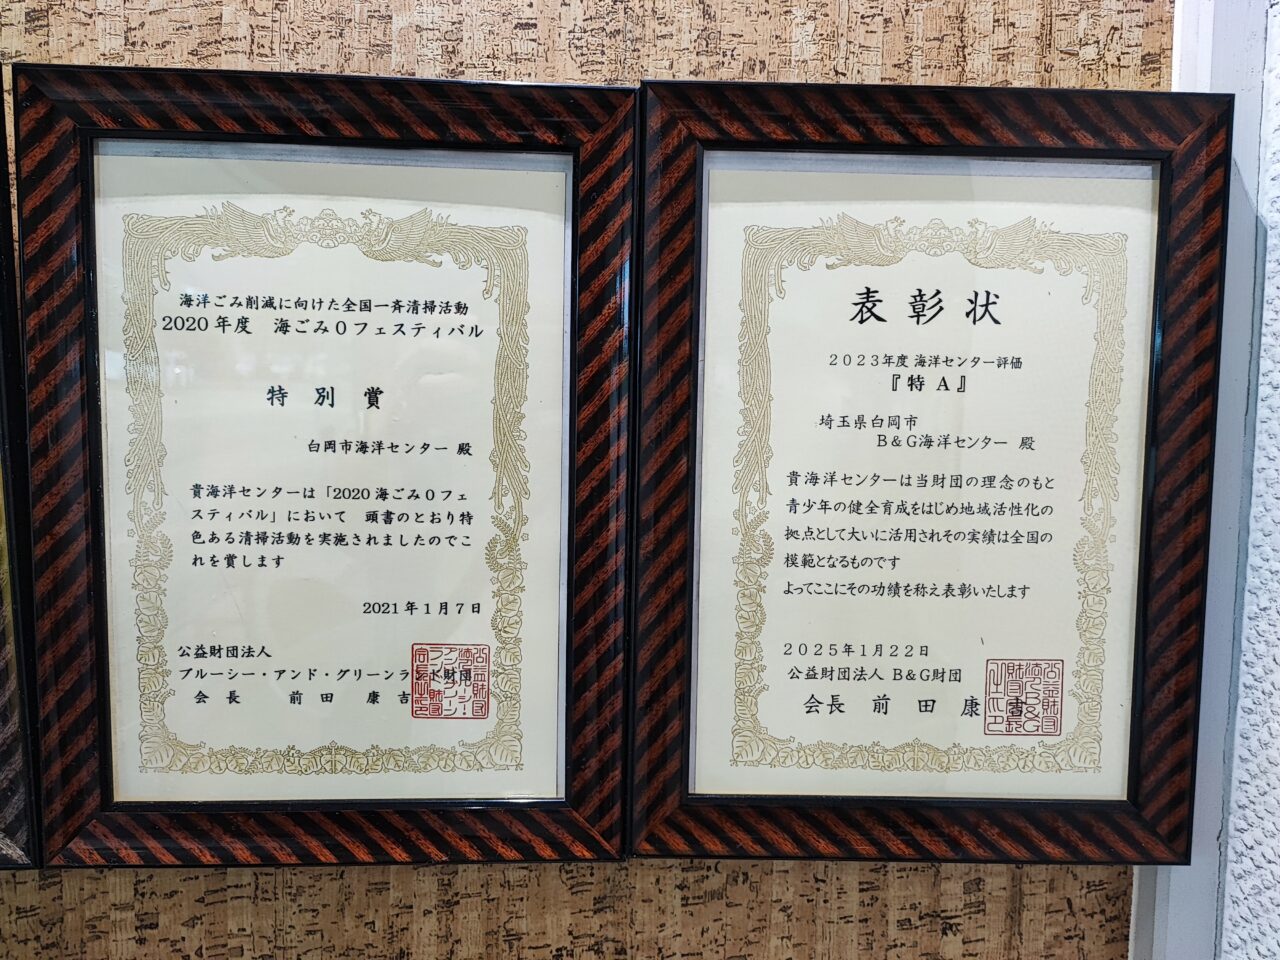 海洋ごみ削減に向けた全国一斉清掃活動
2020年度　海ごみ0フェスティバル
特別賞
白岡市海洋センター 殿
貴海洋センターは「2020海ごみ0フェ
スティバル」において　頭書のとおり特
色ある清掃活動を実施されましたのでこ
れを賞します
2021年1月7日
公益財団法人
ブルーシー・アンド・グリーンランド財団
会長　前田康吉
表彰状
2023年度 海洋センター評価
『特A』
埼玉県白岡市
B&G海洋センター 殿
貴海洋センターは当財団の理念のもと
青少年の健全育成をはじめ地域活性化の
拠点として大いに活用されその実績は全国の
模範となるものです
よってここにその功績を称え表彰いたします
2025年1月22日
公益財団法人 B&G財団
会長 前田康